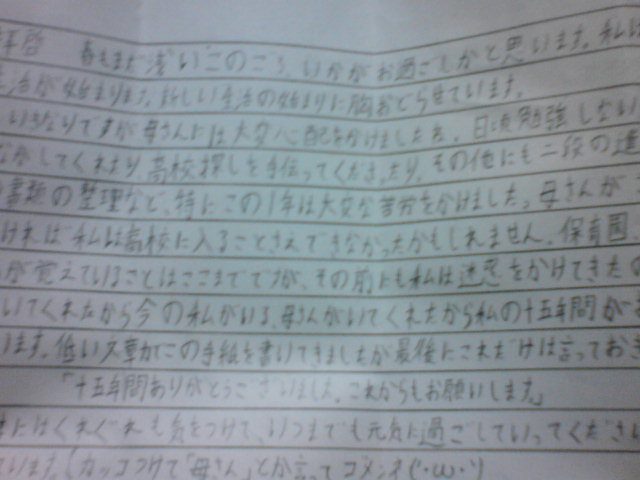 拝啓 春もまだ浅いこのころ、いかがお過ごしかと思います。私は
生活が始まります。新しい生活の始まりに胸おどらせています。
いきなりですが母さんには大変心配をかけましたね。日頃勉強しない
なかしてくれたり、高校探しを手伝ってくださったり、その他にも二段の進
書類の整理など、特にこの1年は大変な苦労をかけました。母さんが
ければ私は高校に入ることさえできなかったかもしれません。保育園、
が覚えていることはここまでですが、その前にも私は迷惑をかけてきたの
いてくれたから今の私がいる、母さんがいてくれたから私の十五年間が
います。低い文章力でこの手紙を書いてきましたが最後にこれだけは言っておき
「十五年間ありがとうございました。これからもお願いします。」
にはくれぐれも気をつけて、いつまでも元気に過ごしていってくださ
ています。(カッコつけて「母さん」とか言ってゴメンネ(´・ω・`)